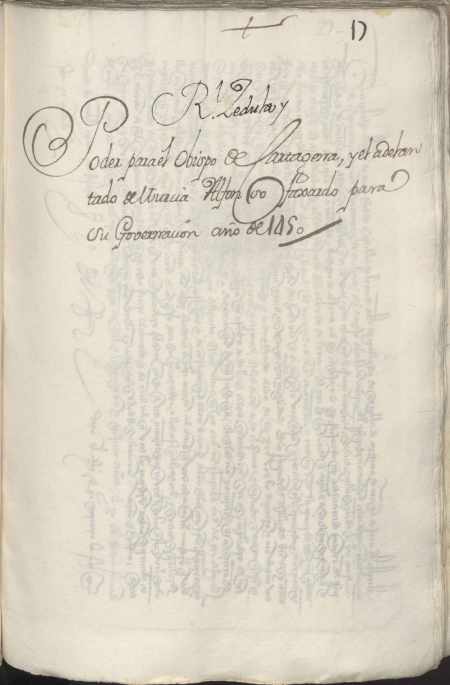 17
R.l Zedula y
Poder para el Obispo de Cartagena, y el adelan
tado de Murcia Alfonso faxardo para
su Governación año de 1450